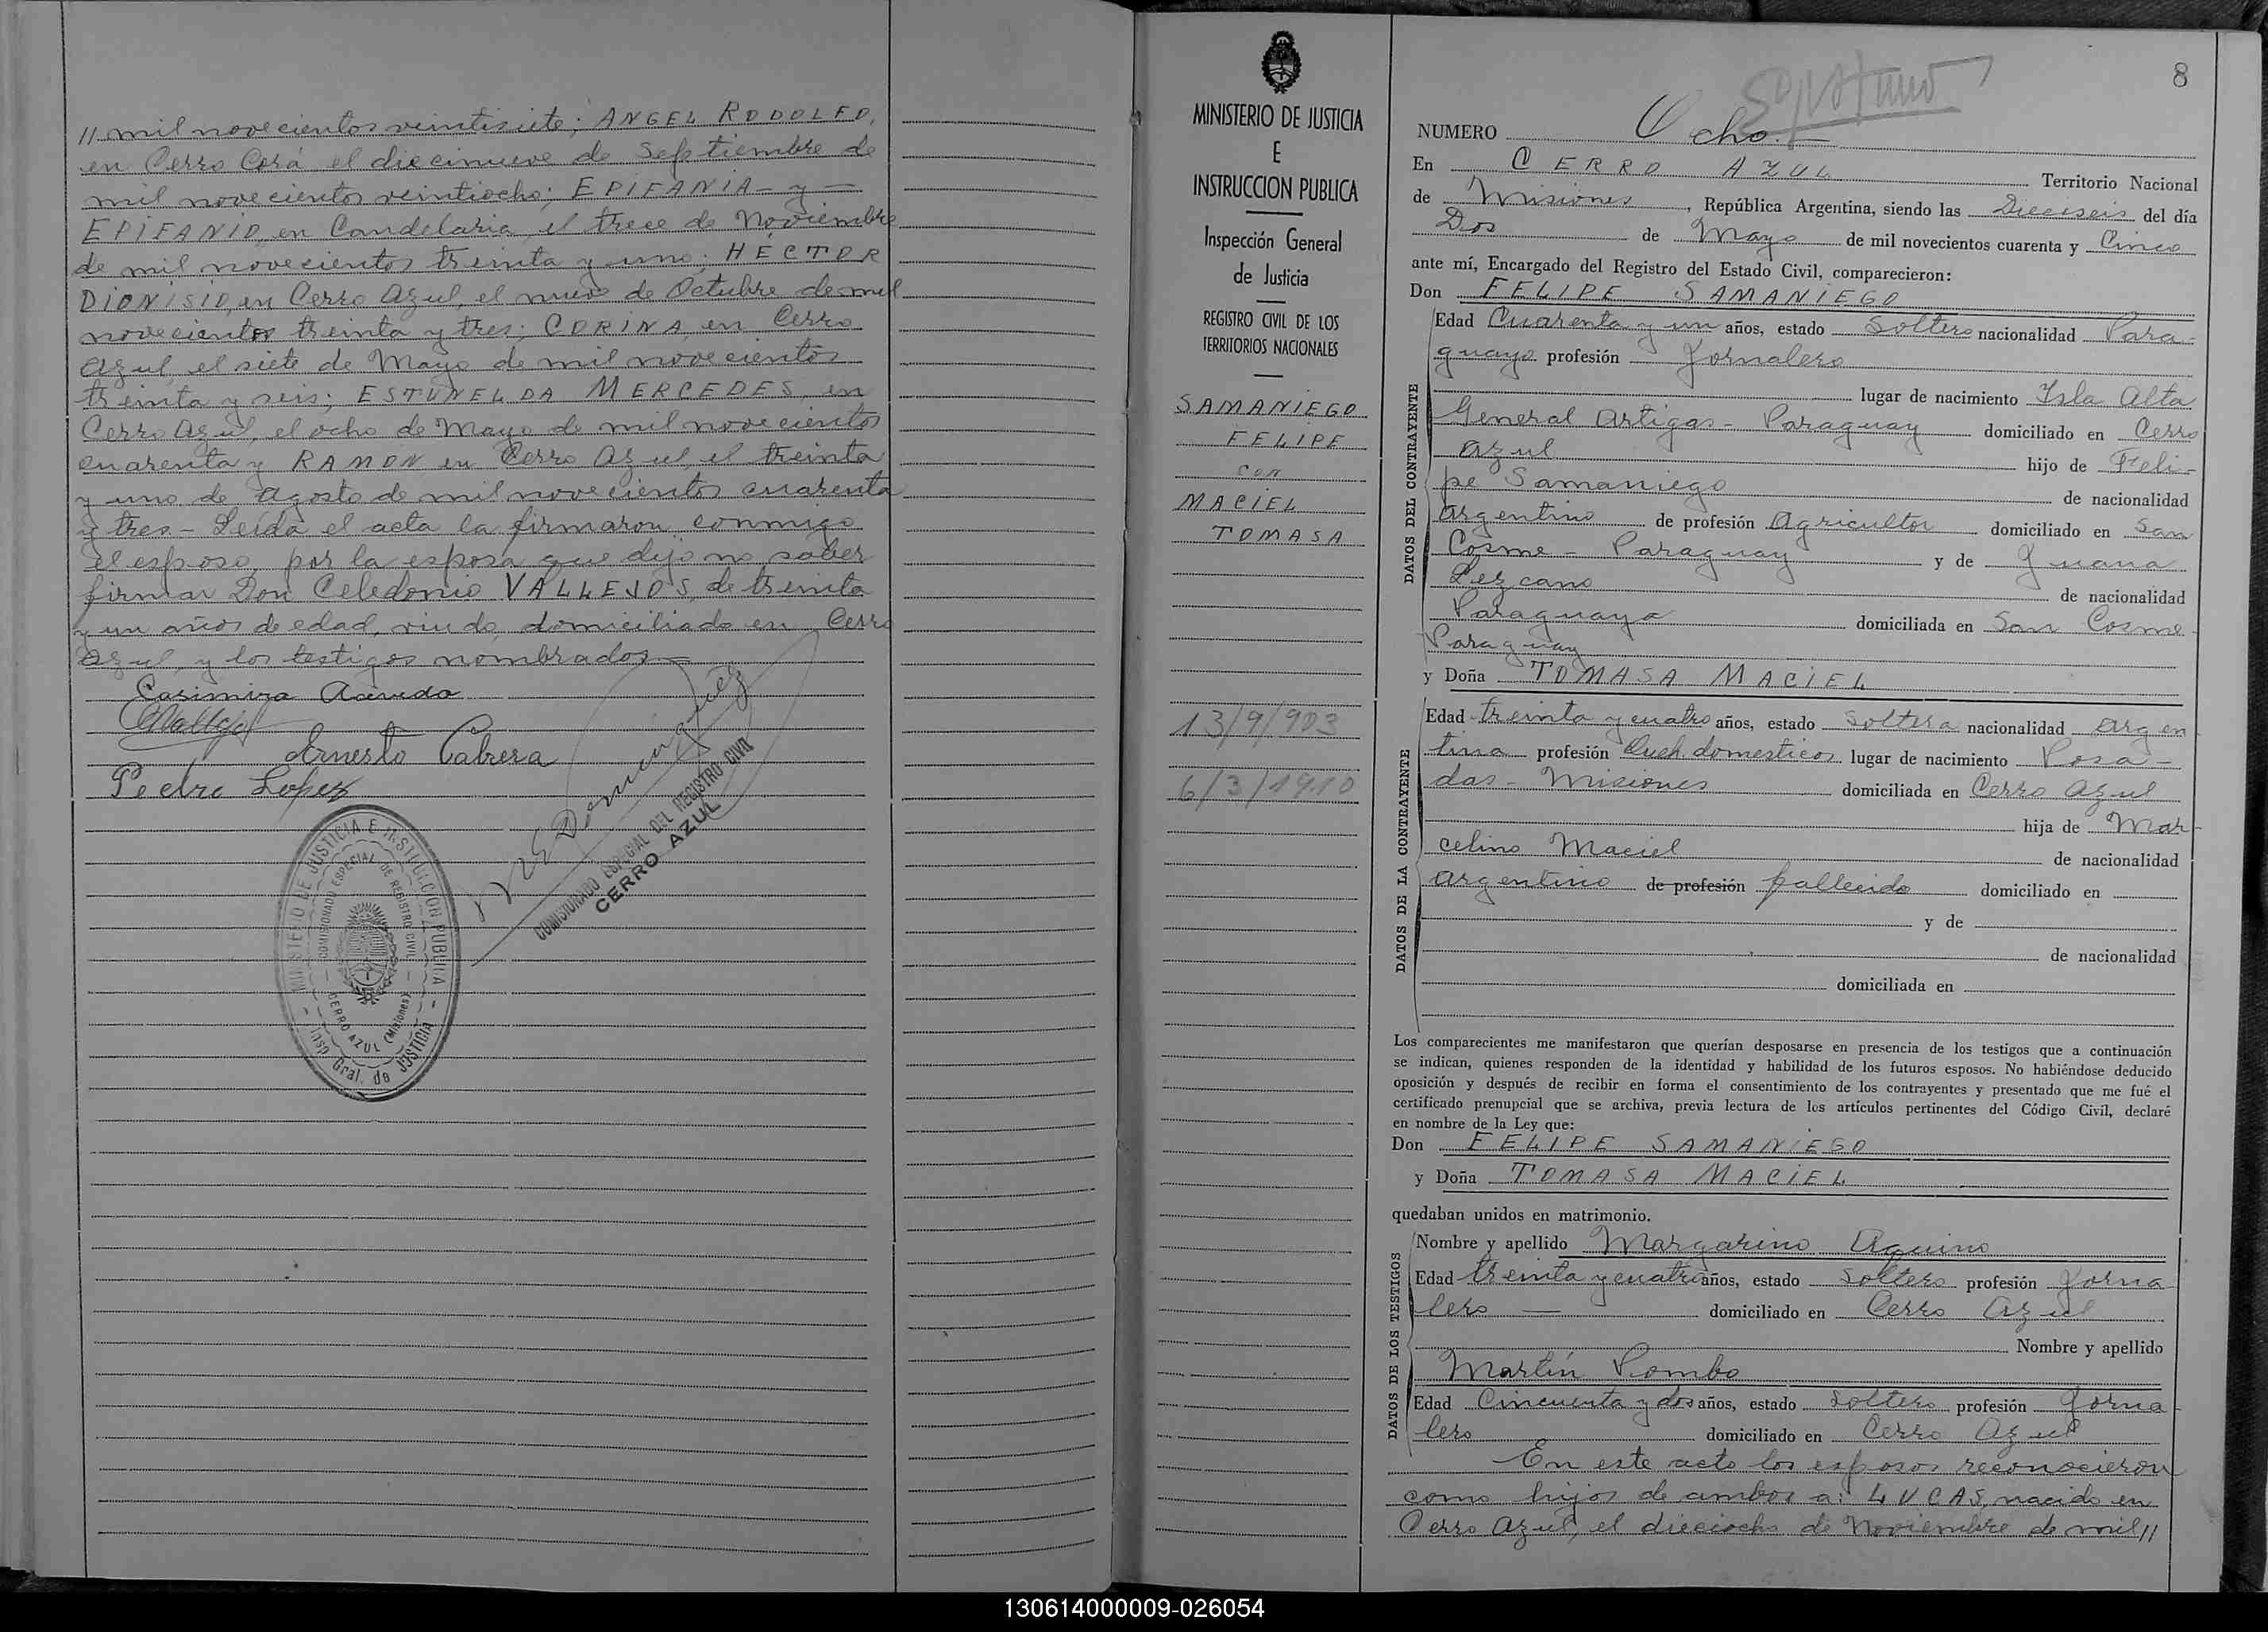 // mil novecientos veintisiete; ANGEL RODOLFO,
en Cerro Corá el diecinueve de Septiembre de
mil novecientos veintiocho; EPIFANIA - y -
EPIFANIO, en Candelaria el trece de Noviembre
de mil novecientos treinta y uno; HÉCTOR
DIONISIO, en Cerro Azul, el nueve de Octubre de mil
novecientos treinta y tres; CORINA, en Cerro
Azul, el siete de Mayo de mil novecientos
treinta y seis; ESTUNELDA MERCEDES, en
Cerro Azul, el ocho de Mayo de mil novecientos
cuarenta y RAMON en Cerro Azul el treinta
y uno de Agosto de mil novecientos cuarenta
y tres - Leída el acta la firmaron conmigo
el esposo, por la esposa que dijo no saber
firmar Don Celedonio VALLEJOS, de treinta
y un años de edad, viudo, domiciliado en Cerro
Azul, y los testigos nombrados -
Casimira Acevedo
CVallejos
Ernesto Cabrera
Pedro Lopez
Dominguez
COMISIONADO ESPECIAL DEL REGISTRO CIVIL
CERRO AZUL
MINISTERIO DE JUSTICIA E INSTRUCCION PUBLICA - Insp. Gral. de JUSTICIA -
COMISIONADO ESPECIAL DE REGISTRO CIVIL - CERRO AZUL (Misiones)
MINISTERIO DE JUSTICIA
E
INSTRUCCION PUBLICA
Inspección General
de Justicia
REGISTRO CIVIL DE LOS
TERRITORIOS NACIONALES
SAMANIEGO
FELIPE
CON
MACIEL
TOMASA
13/9/903
6/3/1910
8
NUMERO Ocho
En CERRO AZUL Territorio Nacional
de Misiones, República Argentina, siendo las Dieciseis del día
Dos de Mayo de mil novecientos cuarenta y Cinco
ante mí, Encargado del Registro del Estado Civil, comparecieron:
Don FELIPE SAMANIEGO
DATOS DEL CONTRAYENTE
Edad Cuarenta y un años, estado Soltero nacionalidad Para-
guayo profesión Jornalero
lugar de nacimiento Isla Alta
General Artigas - Paraguay domiciliado en Cerro
Azul hijo de Feli-
pe Samaniego de nacionalidad
Argentino de profesión Agricultor domiciliado en San
Cosme - Paraguay y de Juana
Lezcano de nacionalidad
Paraguaya domiciliada en San Cosme -
Paraguay
y Doña TOMASA MACIEL
DATOS DE LA CONTRAYENTE
Edad treinta y cuatro años, estado Soltera nacionalidad Argen
tina profesión Queh. domesticos lugar de nacimiento Posa-
das - Misiones domiciliada en Cerro Azul
hija de Mar-
celino Maciel de nacionalidad
Argentino de profesión fallecido domiciliado en
y de
de nacionalidad
domiciliada en
Los comparecientes me manifestaron que querían desposarse en presencia de los testigos que a continuación
se indican, quienes responden de la identidad y habilidad de los futuros esposos. No habiéndose deducido
oposición y después de recibir en forma el consentimiento de los contrayentes y presentado que me fué el
certificado prenupcial que se archiva, previa lectura de los artículos pertinentes del Código Civil, declaré
en nombre de la Ley que:
Don FELIPE SAMANIEGO
y Doña TOMASA MACIEL
quedaban unidos en matrimonio.
DATOS DE LOS TESTIGOS
Nombre y apellido Margarino Aquino
Edad treinta y cuatro años, estado Soltero profesión Jorna
lero - domiciliado en Cerro Azul
Nombre y apellido
Martín Pombo
Edad Cincuenta y dos años, estado Soltero profesión Jorna
lero domiciliado en Cerro Azul
En este acto los esposos reconocieron
como hijos de ambos a: LUCAS, nacido en
Cerro Azul, el dieciocho de Noviembre de mil //
130614000009-026054